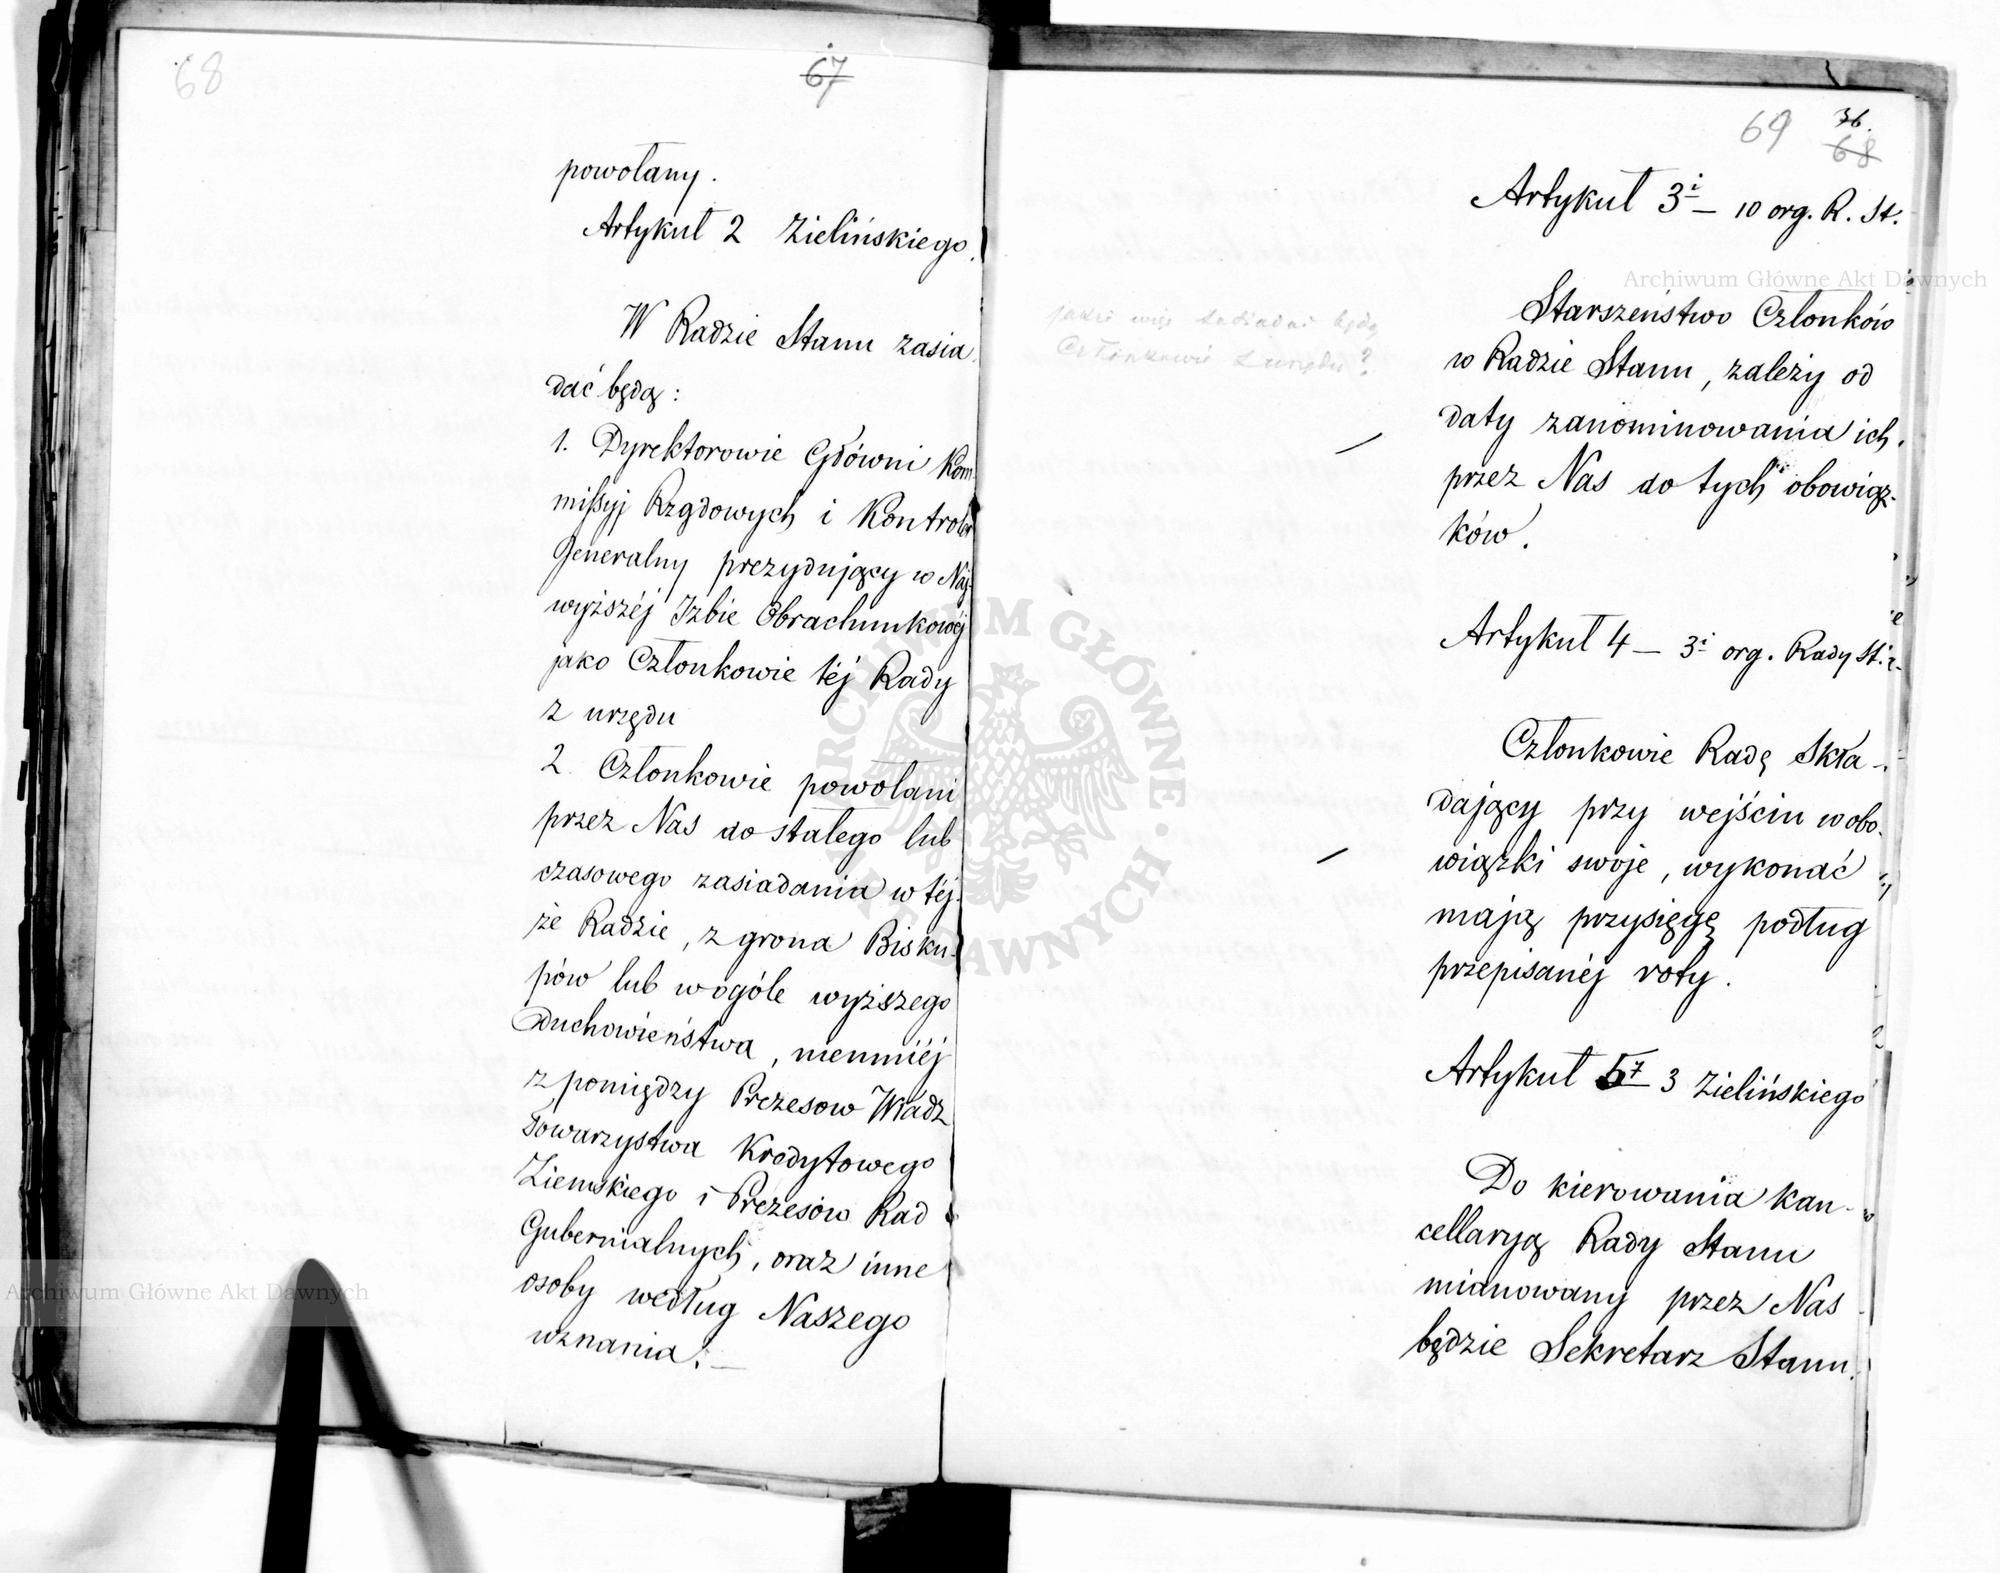 68
67
powołany.
Artykuł 2 Zielińskiego.
W Radzie Stanu zasia
dać będą:
1. Dyrektorowie Główni Kom
missyj Rządowych i Kontroler
Jeneralny prezydujący w Naj-
wyższéj Izbie Obrachunkowéj
jako Członkowie téj Rady
z urzędu
2. Członkowie powołani
przez Nas do stałego lub
czasowego zasiadania w téj-
że Radzie, z grona Bisku-
pów lub wogóle wyższego
Duchowieństwa, niemniéj
z pomiędzy Prezesow Władz
Towarzystwa Kredytowego
Ziemskiego i Prezesów Rad
Gubernialnych, oraz inne
osoby według Naszego
uznania. —
69
36.
68
Artykuł 3 i — 10 org. R. St.
jakże więc zasiadać będą
Członkowie z urzędu?
Starszeństwo Członków
w Radzie Stanu, zależy od
daty zanominowania ich
przez Nas do tych obowiąz-
ków.
Artykuł 4 — 3 i org. Rady St.
Członkowie Radę skła-
dający przy wejściu w obo-
wiązki swoje, wykonać
mają przysięgę podług
przepisanéj roty.
Artykuł 5 7 3 Zielińskiego
Do kierowania kan-
cellaryą Rady Stanu
mianowany przez Nas
będzie Sekretarz Stanu.
Archiwum Główne Akt Dawnych
Archiwum Główne Akt Dawnych
ARCHIWUM GŁÓWNE AKT DAWNYCH